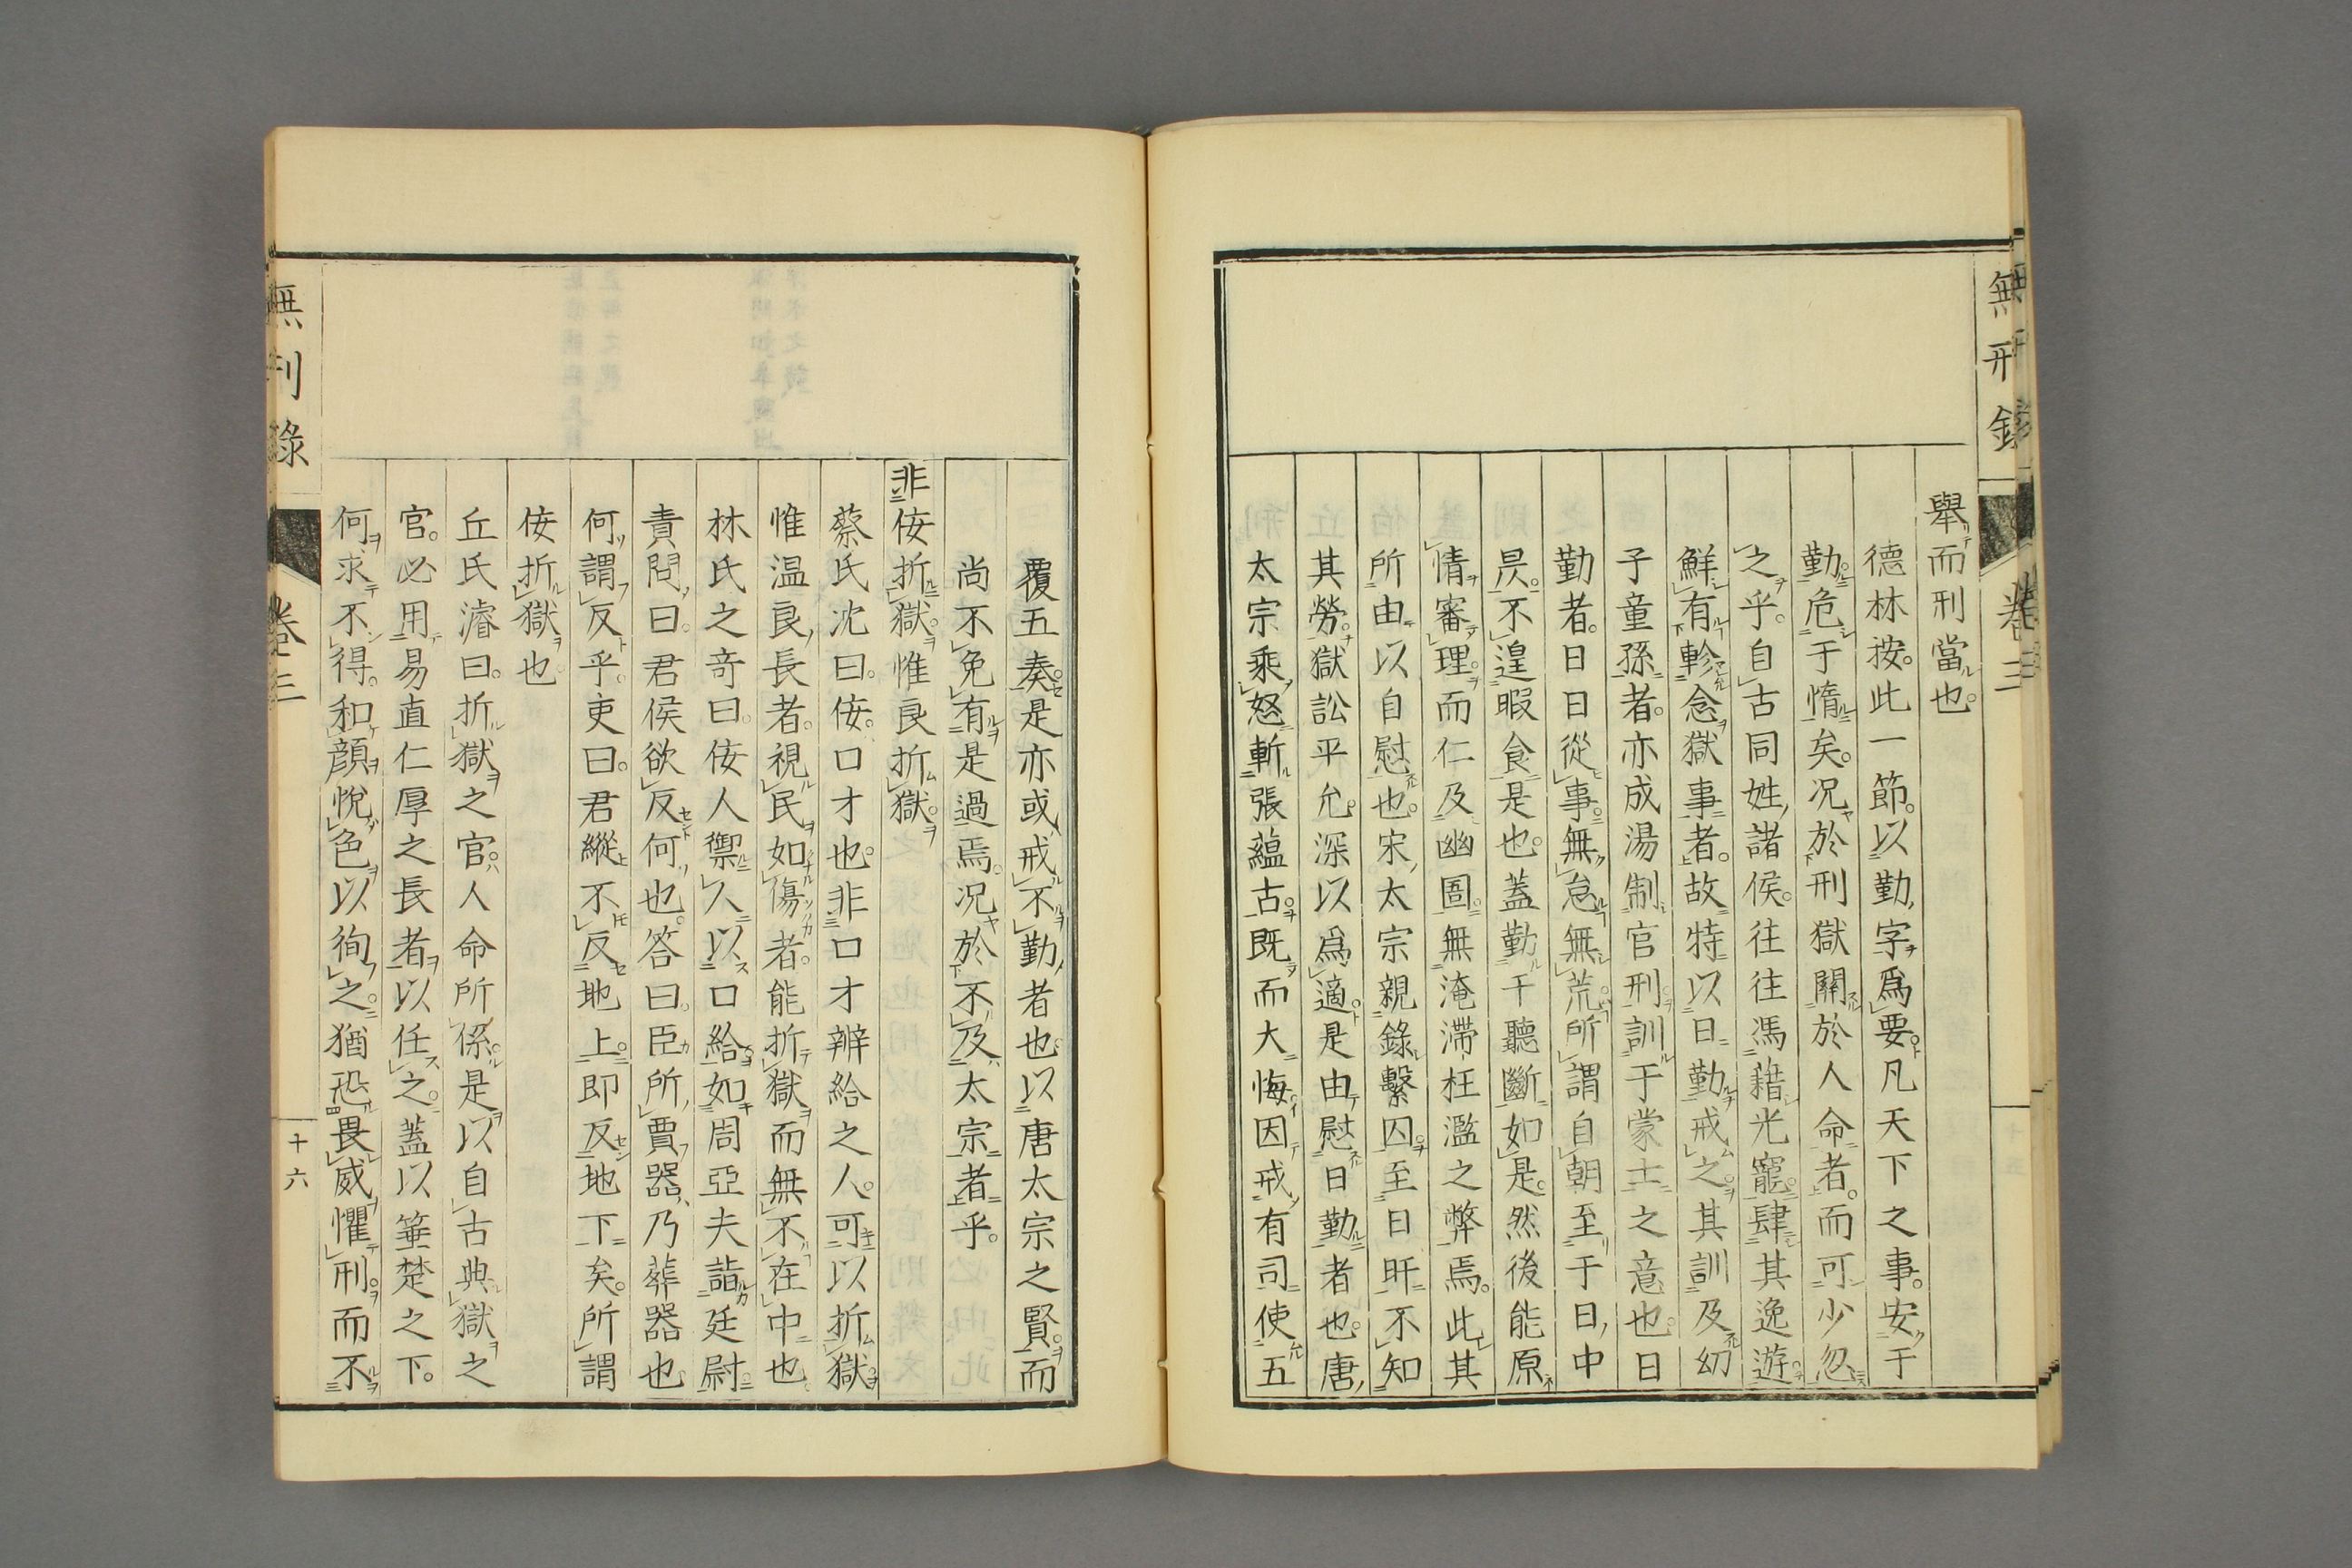 無刑錄
卷三
舉而刑當也。
德林按。此一節。以勤字爲要凡天下之事。安于
勤。危于惰矣。况於刑獄關於人命者。而可少忽
之乎。自古同姓諸侯。往往馮藉光寵。肆其逸遊
鮮有軫念獄事者。故特以日勤戒之。其訓及幼
子童孫者。亦成湯制官刑訓于蒙士之意也。日
勤者。日日從事。無怠無荒。所謂自朝至于日中
昃。不遑暇食是也。蓋勤于聽斷如是。然後能原
情審理。而仁及幽圄。無淹滯枉濫之弊焉。此其
所由以自慰也。宋太宗親錄繫囚。至日旰不知
其勞。獄訟平允。深以爲適是由慰日勤者也。唐
太宗乘怒斬張蘊古。既而大悔。因戒有司使五
覆五奏。是亦或戒不勤者也。以唐太宗之賢。而
尚不免有是過焉。况於不及太宗者乎。
非佞折獄。惟良折獄。
蔡氏沈曰。佞。口才也。非口才辨給之人。可以折獄。
惟温良長者。視民如傷者。能折獄而無不在中也。
林氏之奇曰。佞人禦人以口給。如周亞夫詣廷尉。
責問曰。君侯欲反何也。答曰。臣所賈器。乃葬器也。
何謂反乎。吏曰。君縱不反地上。即反地下矣。所謂
佞折獄也。
丘氏濬曰。折獄之官。人命所係。是以自古典獄之
官。必用易直仁厚之長者。以任之。蓋以箠楚之下。
何求不得。和顔悅色以徇之。猶恐畏威懼刑。而不
無刑錄
卷三
十六